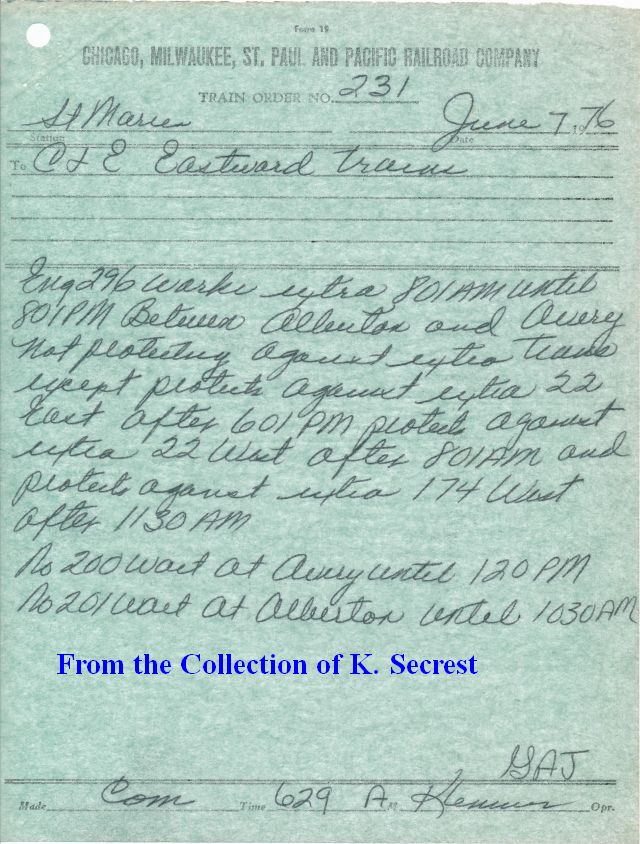 Form 19
CHICAGO, MILWAUKEE, ST. PAUL AND PACIFIC RAILROAD COMPANY
TRAIN ORDER NO. 231
St Maries June 7 1976
Station Date
To C & E Eastward trains
Eng 296 works extra 801AM until
801PM Between Alberton and Avery
Not protecting against extra trains
except protects against extra 22
East after 601 PM protects against
extra 22 West after 801AM and
protects against extra 174 West
after 1130 AM
No 200 wait at Avery until 120 PM
No 201 wait at Alberton until 1030 AM
From the Collection of K. Secrest
GAJ
Made Com Time 629 A M Opr.